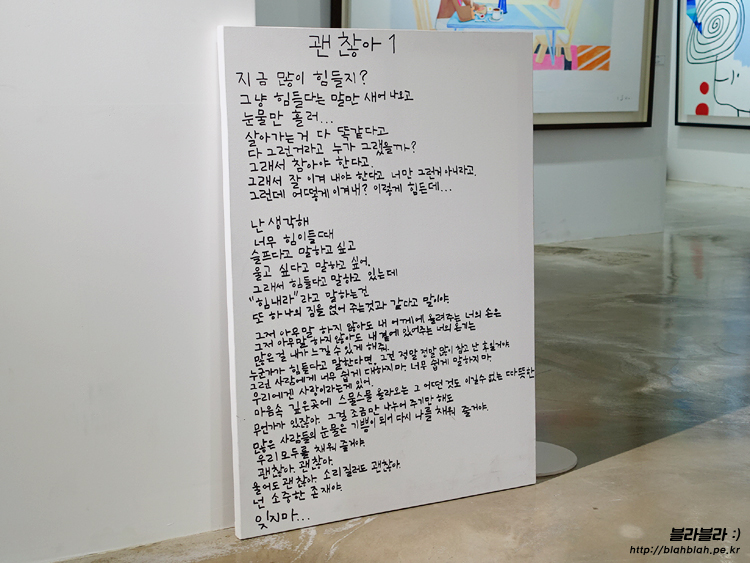 괜찮아 1
지금 많이 힘들지?
그냥 힘들다는 말만 새어 나오고
눈물만 흘러...
살아가는거 다 똑같다고
다 그런거라고 누가 그랬을까?
그래서 참아야 한다고.
그래서 잘 이겨 내야 한다고 너만 그런거 아니라고.
그런데 어떻게 이겨내? 이렇게 힘든데...
난 생각해
너무 힘이들때
슬프다고 말하고 싶고
울고 싶다고 말하고 싶어.
그래서 힘들다고 말하고 있는데
"힘내라"라고 말하는건
또 하나의 짐을 얹어 주는것과 같다고 말이야.
그저 아무말 하지 않아도 내 어깨에 올려주는 너의 손은
그저 아무말 하지 않아도 내 곁에 있어주는 너의 온기는
많은걸 내가 느낄수 있게 해줘.
누군가가 힘들다고 말한다면. 그건 정말 정말 많이 참고 난 후일거야.
그런 사람에게 너무 쉽게 대하지마. 너무 쉽게 말하지마.
우리에겐 사랑이라는게 있어.
마음속 깊은곳에 스물스물 올라오는 그 어떤 것도 이길수 없는 따뜻한
무언가가 있잖아. 그걸 조금만 나누어 주기만 해도
많은 사람들의 눈물은 기쁨이 되어 다시 나를 채워 줄거야.
우리 모두를 채워 줄거야.
괜찮아. 괜찮아.
울어도 괜찮아. 소리 질러도 괜찮아.
넌 소중한 존재야.
잊지마...
블라블라 :)
http://blahblah.pe.kr